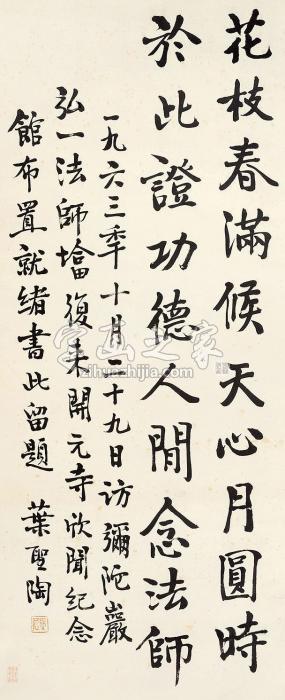 花枝春滿候天心月圓時
於此證功德人間念法師
一九六三季十月二十九日訪彌陀巖
弘一法師塔復来開元寺欣聞紀念
館布置就緒書此留題 葉聖陶
字画之家
zihuazhijia.com